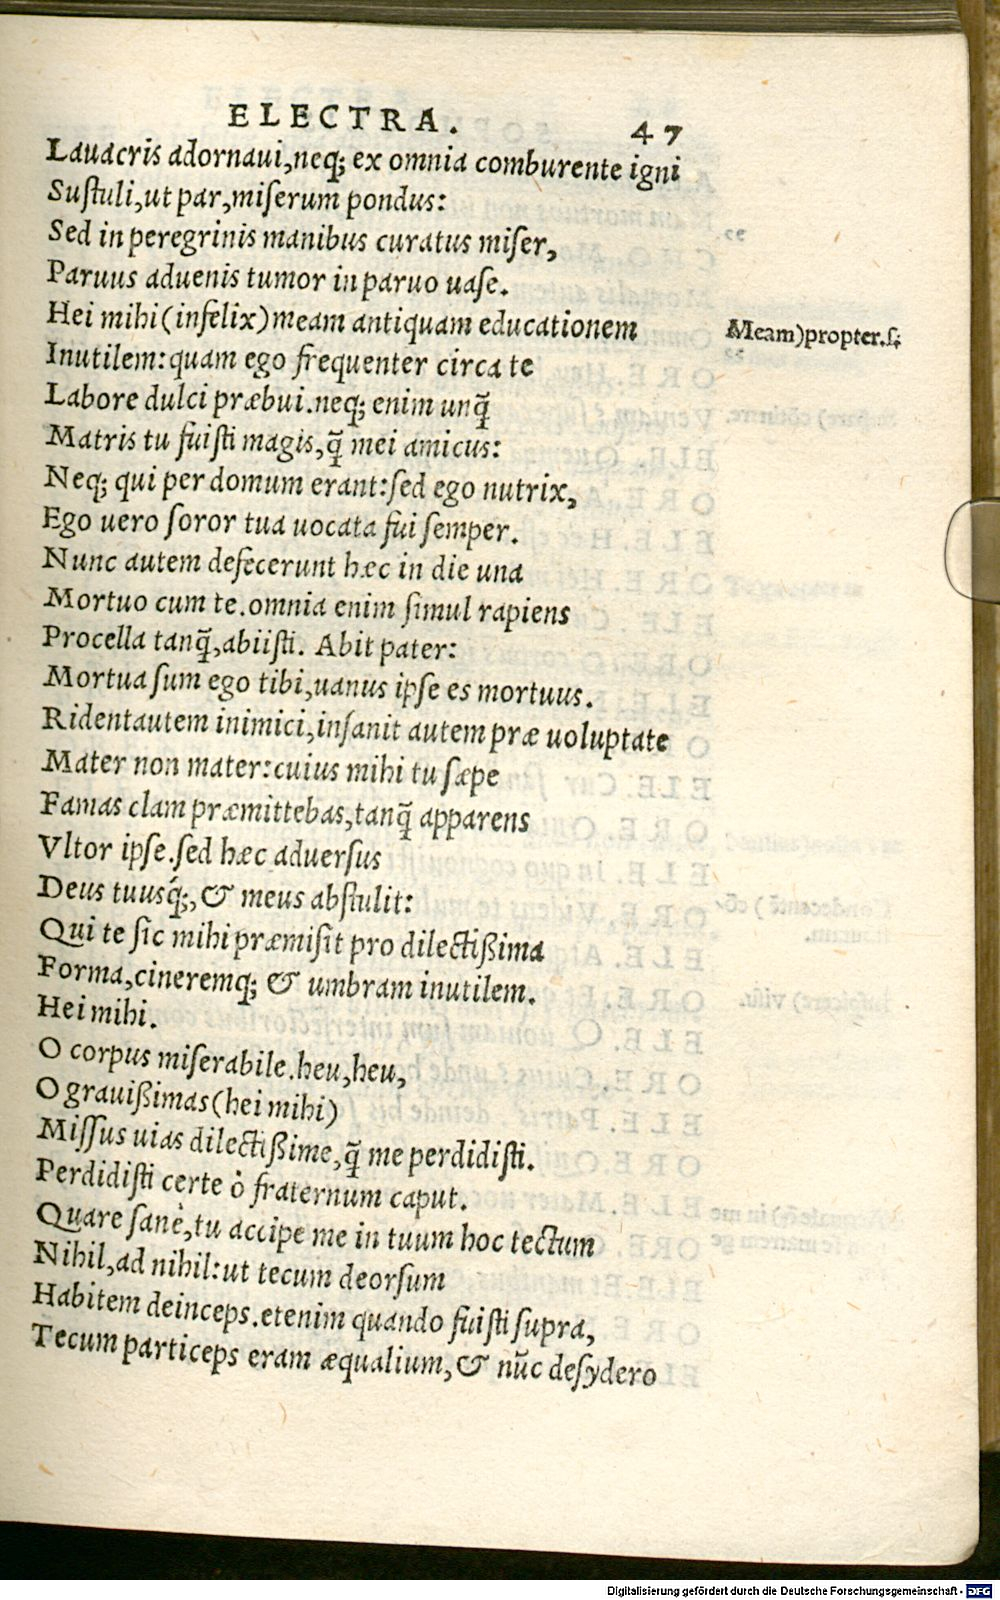 ELECTRA. 47
Lauacris adornaui,neq; ex omnia comburente igni
Suſtuli,ut par,miſerum pondus:
Sed in peregrinis manibus curatus miſer,
Paruus aduenis tumor in paruo uaſe.
Hei mihi(infelix)meam antiquam educationem
Meam)propter.ſ;
Inutilem:quam ego frequenter circa te
Labore dulci præbui.neq; enim unq̃
Matris tu fuiſti magis,q̃ mei amicus:
Neq; qui per domum erant:ſed ego nutrix,
Ego uero ſoror tua uocata fui ſemper.
Nunc autem defecerunt hæc in die una
Mortuo cum te.omnia enim ſimul rapiens
Procella tanq̃,abiiſti. Abit pater:
Mortua ſum ego tibi,uanus ipſe es mortuus.
Rident autem inimici,inſanit autem præ uoluptate
Mater non mater:cuius mihi tu ſæpe
Famas clam præmittebas,tanq̃ apparens
Vltor ipſe.ſed hæc aduerſus
Deus tuusq́;,& meus abſtulit:
Qui te ſic mihi præmiſit pro dilectißima
Forma,cineremq; & umbram inutilem.
Hei mihi.
O corpus miſerabile.heu,heu,
O grauißimas(hei mihi)
Miſſus uias dilectißime,q̃ me perdidiſti.
Perdidiſti certe ò fraternum caput.
Quare ſanè,tu accipe me in tuum hoc tectum
Nihil,ad nihil:ut tecum deorſum
Habitem deinceps.etenim quando fuiſti ſupra,
Tecum particeps eram æqualium,& nũc deſydero
Digitalisierung gefördert durch die Deutsche Forschungsgemeinschaft - DFG